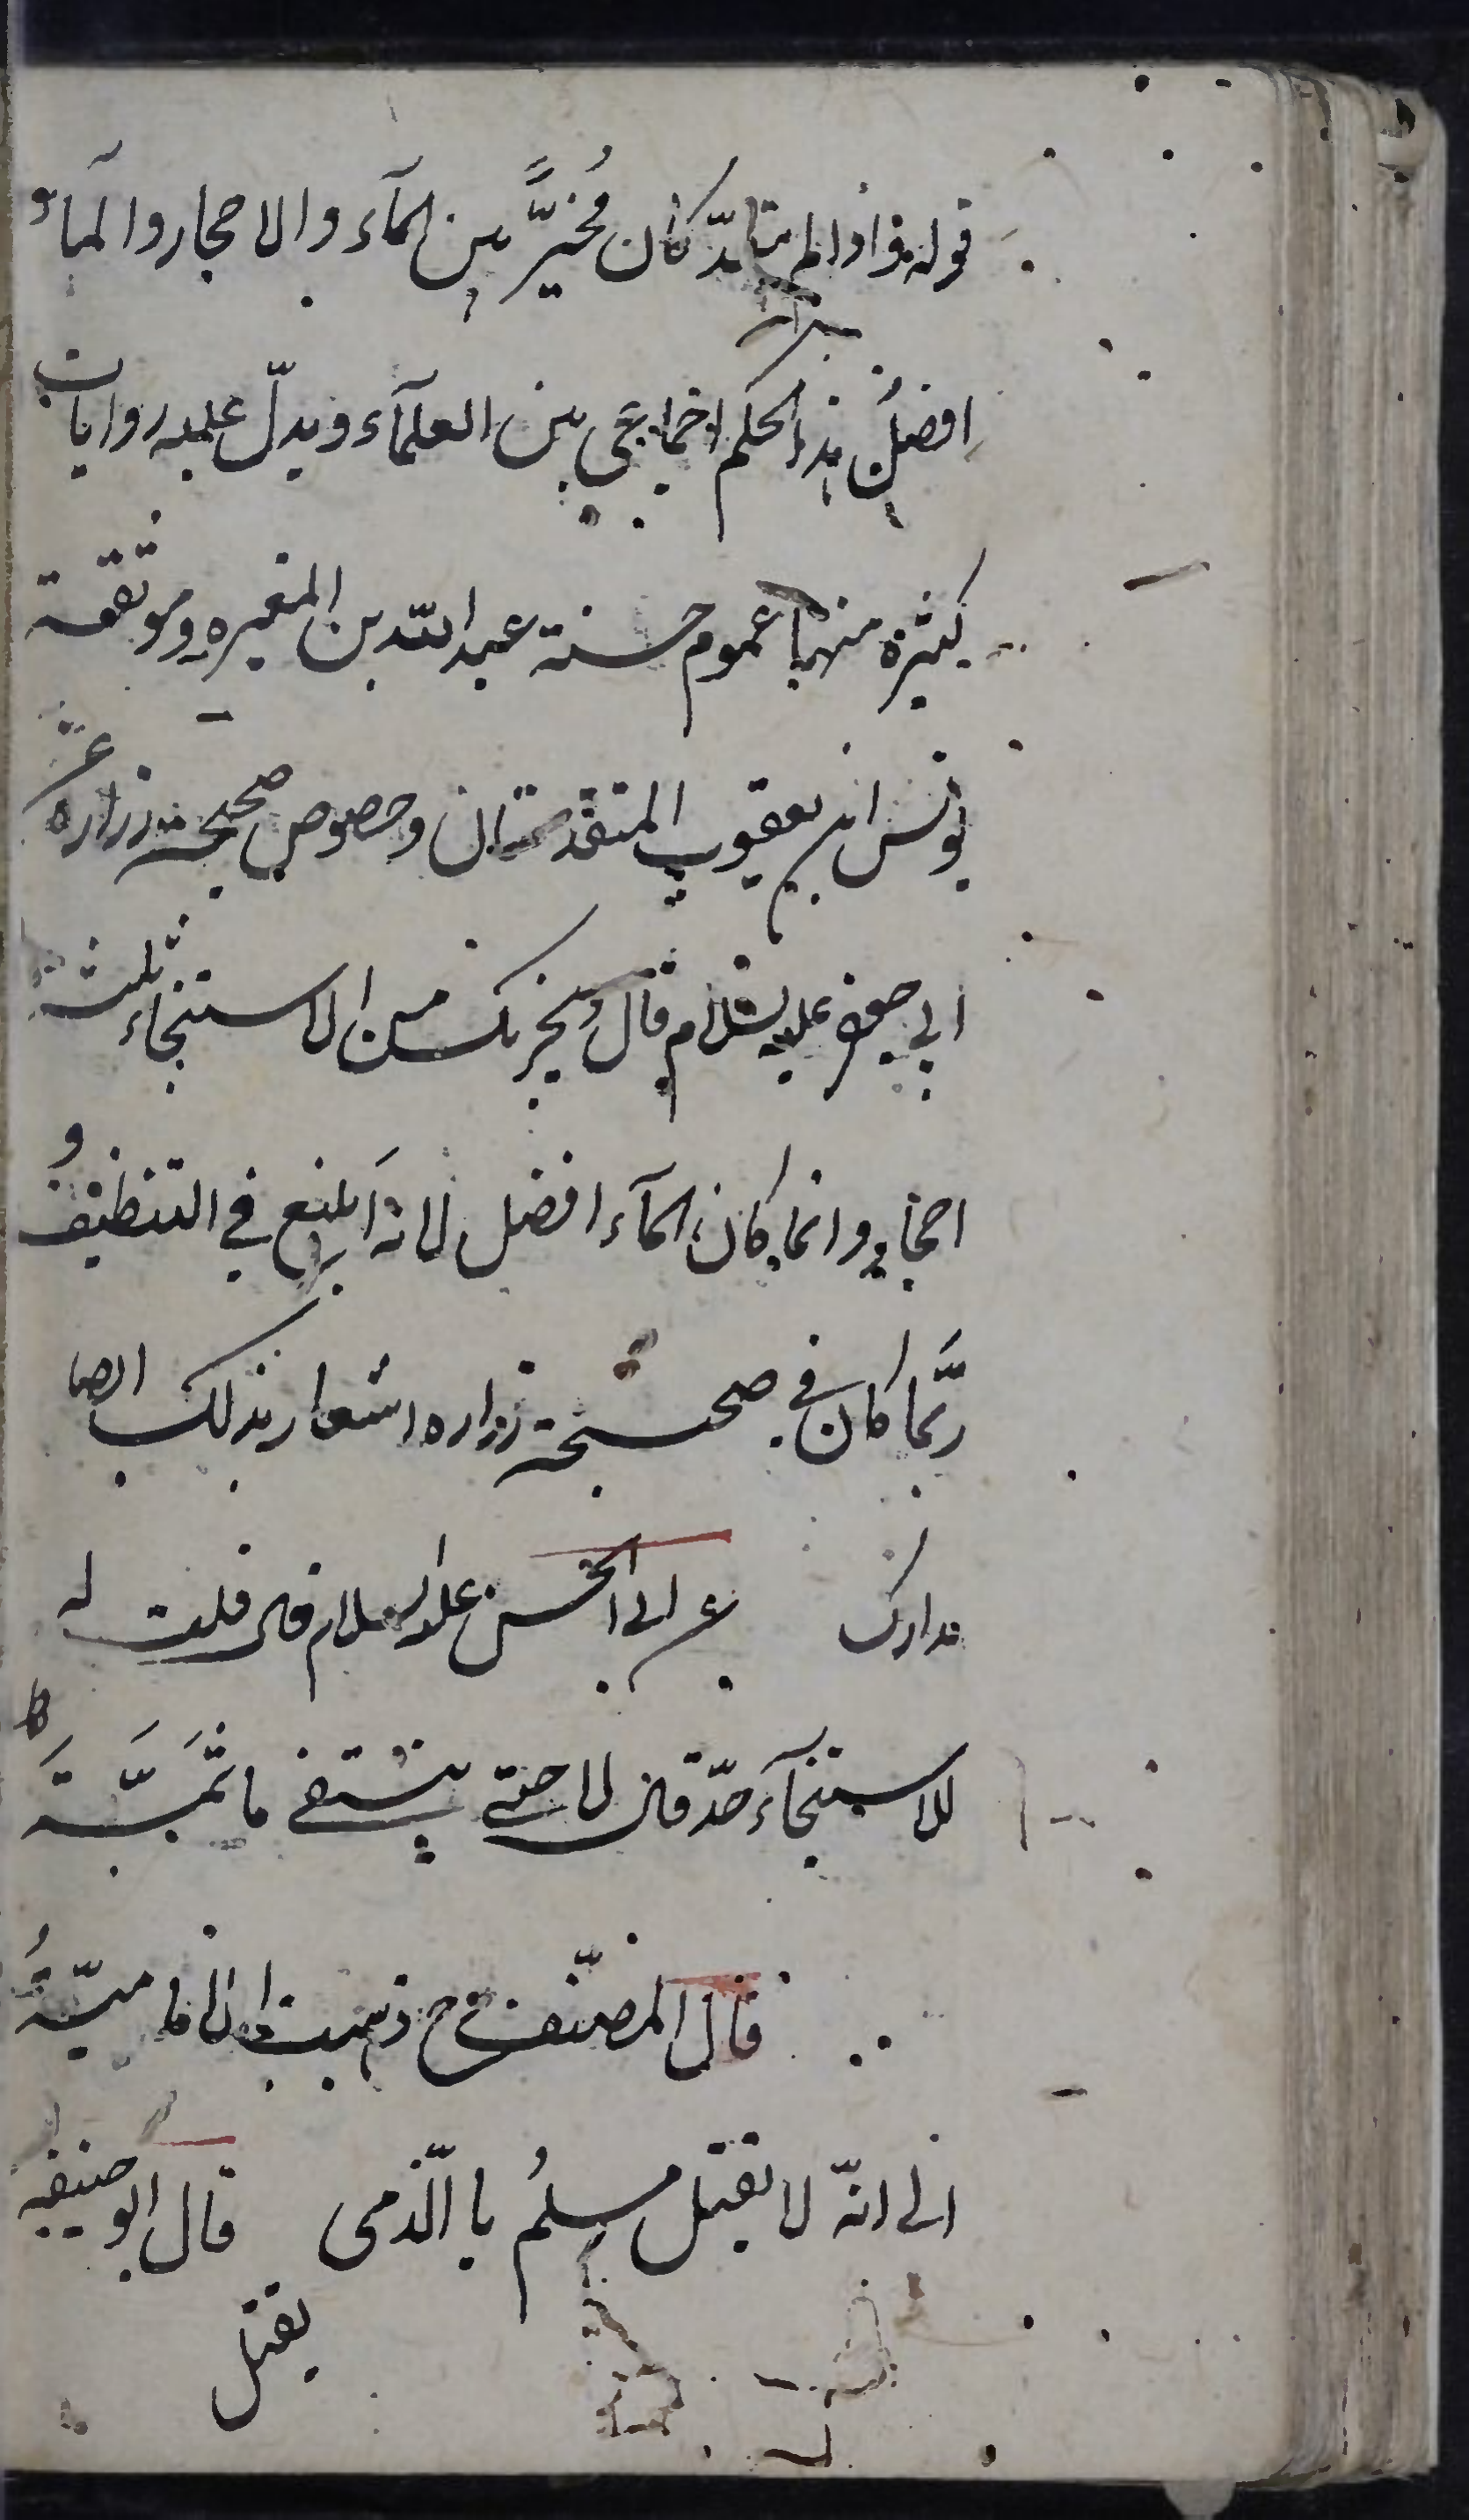 قوله واذا لم يتعدّ كان مُخيرًّ بين المآء والاحجار والمآء
افضلُ هذا الحكم اجماعي بين العلمآء ويدلّ عليه روايات
كثيرة منها عموم حسنة عبد الله بن المغيره وموثقة
يونس ابن يعقوب المتقدمتان وخصوص صحيحة زراره عن
ابي جعفر عليه السلام قال ويجزيك من الاستنجاء ثلثة
احجار وانما كان المآء افضل لانه اَبلغ في التنظيف و
ربَّما كان في صحيحة زراره اشعار بذلك ايضا
مدارك عن ابى الحسن عليه السلام قال قلت له
للاستنجآء حدّ قال لا حتى ينتفى ما ثمَّةَ
قال المصنّف ذهبت الاماميّةُ
الى انّه لا يقتل مسلمُ با الّذمى قال ابو حنيفه
يقتل